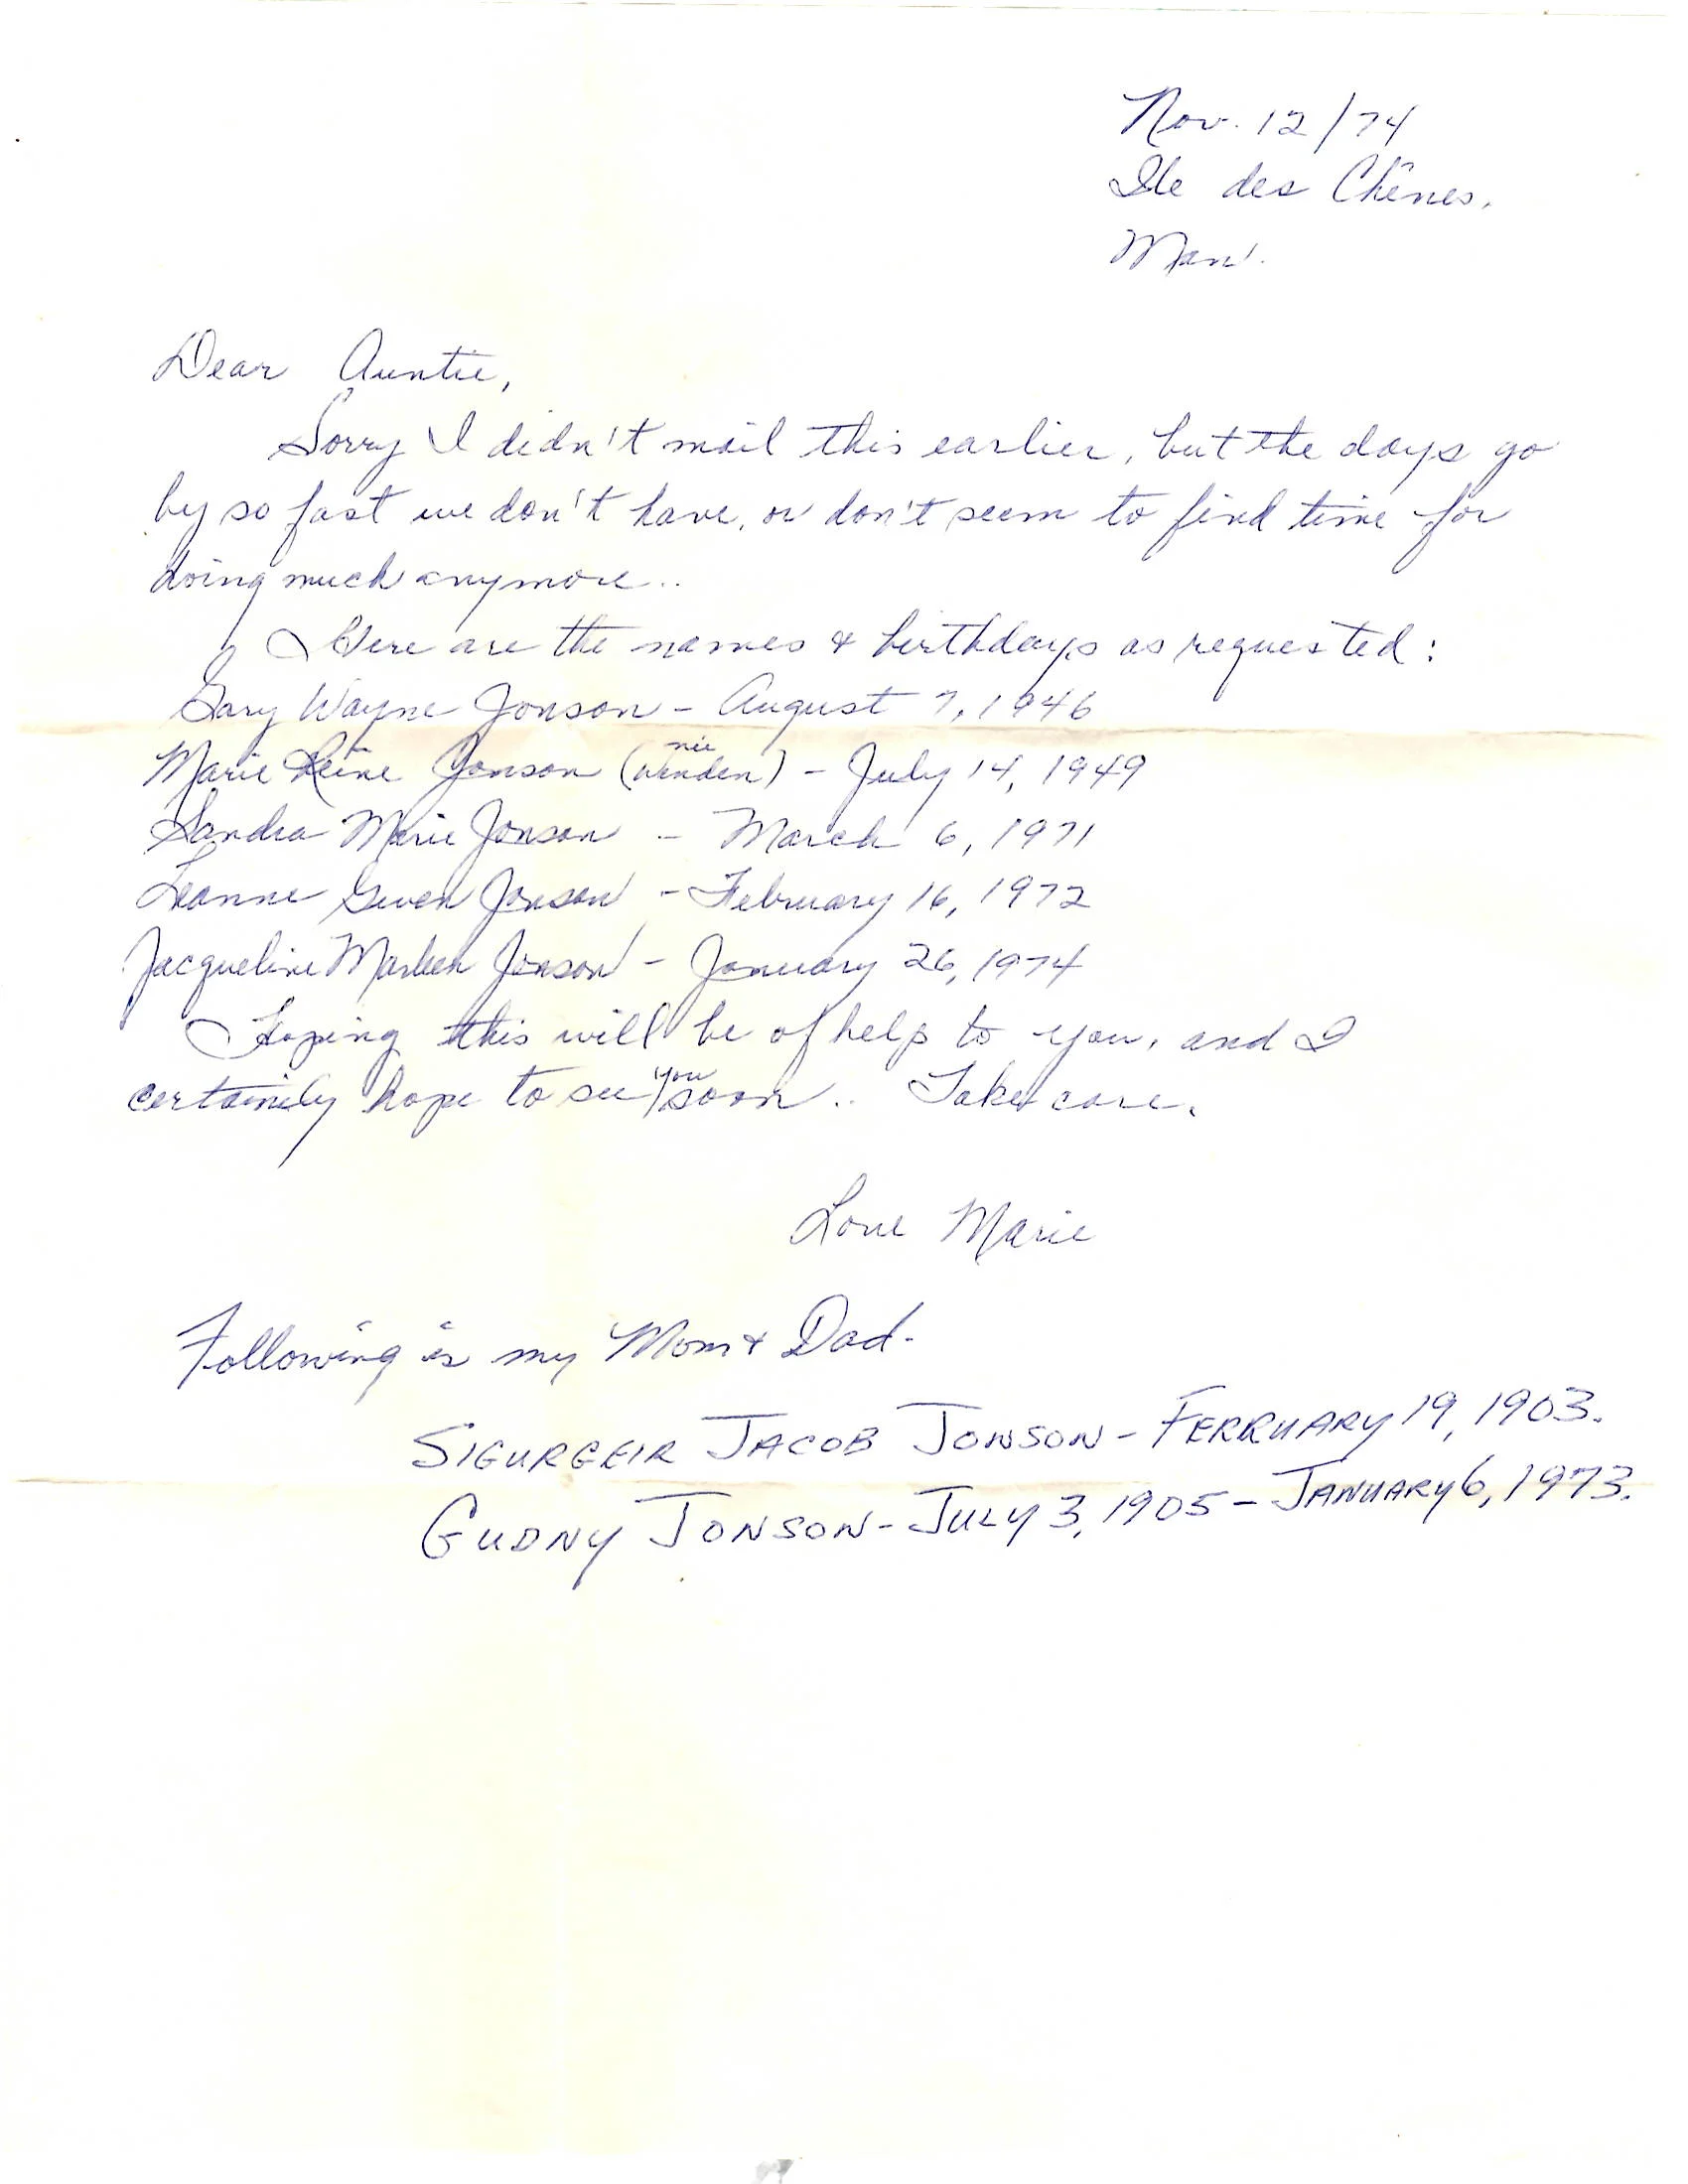 Nov. 12/74
Ile des Chênes,
Man.
Dear Auntie,
Sorry I didn't mail this earlier, but the days go
by so fast we don't have, or don't seem to find time for
doing much anymore..
Here are the names & birthdays as requested:
Gary Wayne Jonson - August 7, 1946
Marie Reine Jonson (née Wenden) - July 14, 1949
Sandra Marie Jonson - March 6, 1971
Leanne Gwen Jonson - February 16, 1972
Jacqueline Marleen Jonson - January 26, 1974
Hoping this will be of help to you, and I
certainily hope to see you soon.. Take care.
Love Marie
Following is my Mom & Dad.
SIGURGEIR JACOB JONSON - FERRUARY 19, 1903.
GUDNY JONSON - JULY 3, 1905 - JANUARY 6, 1973.